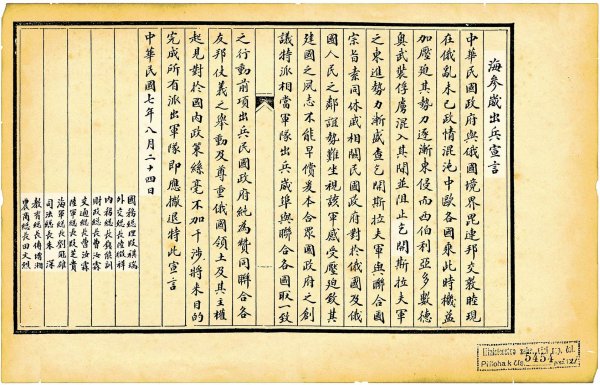 海參崴出兵宣言
中華民國政府與俄國境界毘連邦交敦睦現
在俄亂未已政情混沌中歐各國乘此時機益
加壓迫其勢力逐漸東侵而西伯利亞多數德
奧武裝俘虜混入其間並阻止乞開斯拉夫軍
之東進勢力漸盛查乞開斯拉夫軍與聯合國
宗旨素同休戚相關民國政府對於俄國及俄
國人民之鄰誼勢難坐視該軍感受壓迫致其
建國之夙志不能早償爰本合眾國政府之創
議特派相當軍隊出兵崴埠與聯合各國取一致
之行動前項出兵民國政府純為贊同聯合各
友邦仗義之舉動及尊重俄國領土及其主權
起見對於國內政策絲毫不加干涉將來目的
完成所有派出軍隊即應撤退特此宣言
中華民國七年八月二十四日
國務總理段祺瑞
外交總長陸徵祥
內務總長錢能訓
財政總長曹汝霖
交通總長曹汝霖
陸軍總長段芝貴
海軍總長劉冠雄
司法總長朱深
教育總長傅增湘
農商總長田文烈
Příloha k čís. 5454